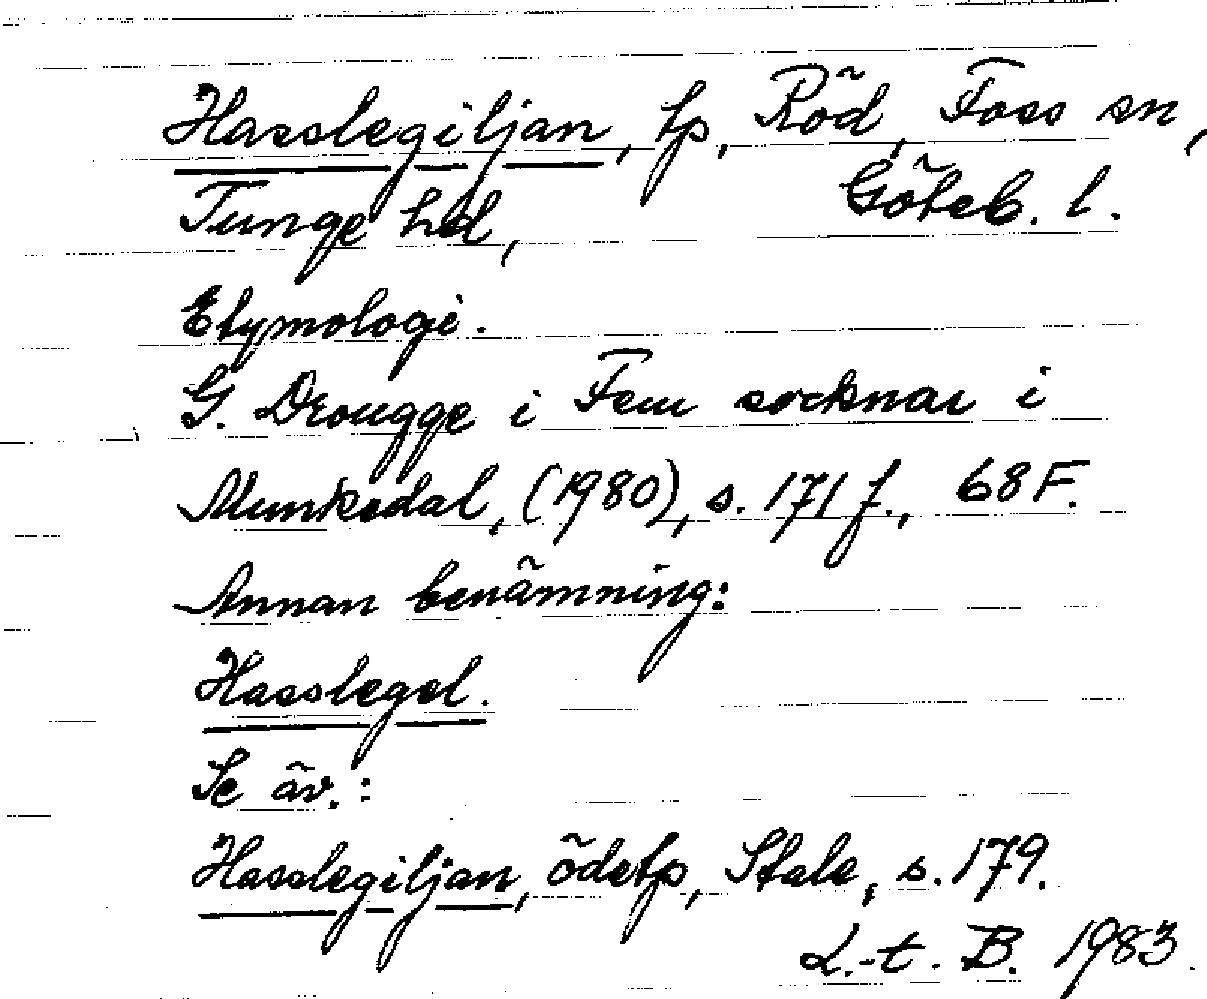 Hasslegiljan, tp, Röd, Foss sn,
Tunge hd, Göteb. l.
Etymologi.
G. Drougge i Fem socknar i
Munkedal, (1980), s. 171 f., 68 F.
Annan benämning:
Hasslegel.
Se äv.:
Hasslegiljan, ödetp, Stale, s. 179.
L.-t. B. 1983.